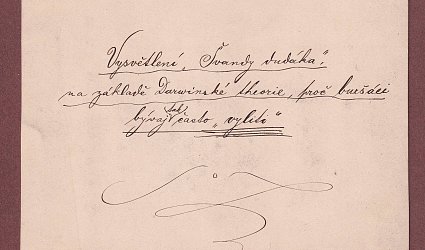 Vysvětlení „Švandy dudáka“,
na základě Darwinské theorie, proč buršáci
bývají tak často „vyliti“